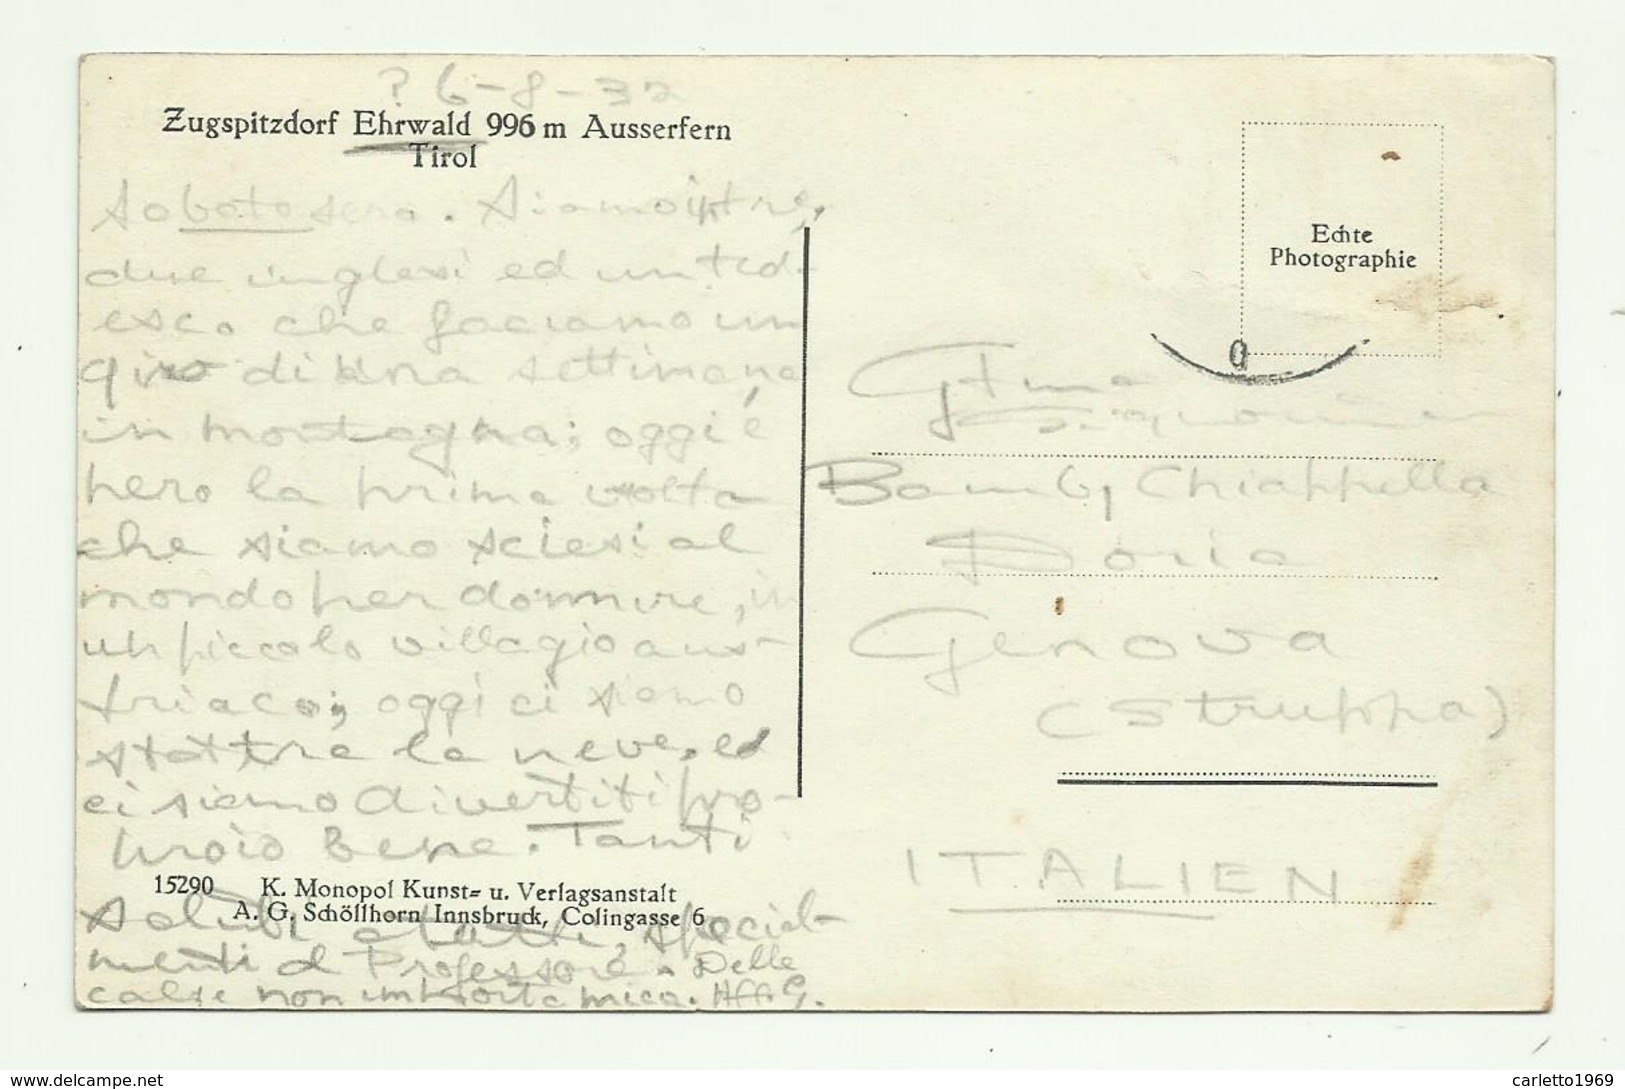 ? 6-8-32
Zugspitzdorf Ehrwald 996 m Ausserfern
Tirol
Sabato sera. Siamo in tre,
due inglesi ed un ted-
esco che facciamo un
giro di una settimana
in montagna; oggi é
pero la prima volta
che siamo scesi al
mondo per dormire, in
un piccolo villagio aus-
triaco; oggi ci siamo
stattra la neve, ed
ci siamo divertiti pro-
proio bene. Tanti
15290 K. Monopol Kunst= u. Verlagsanstalt
A. G. Schöllhorn Innsbruck, Colingasse 6
saluti a tutti, special-
menti al Professore. Delle
calze non importa mica. Aff. G.
Echte
Photographie
Gtma
Signorina
Bamby Chiappella
Doria
Genova
(Struppa)
ITALIEN
carletto1969